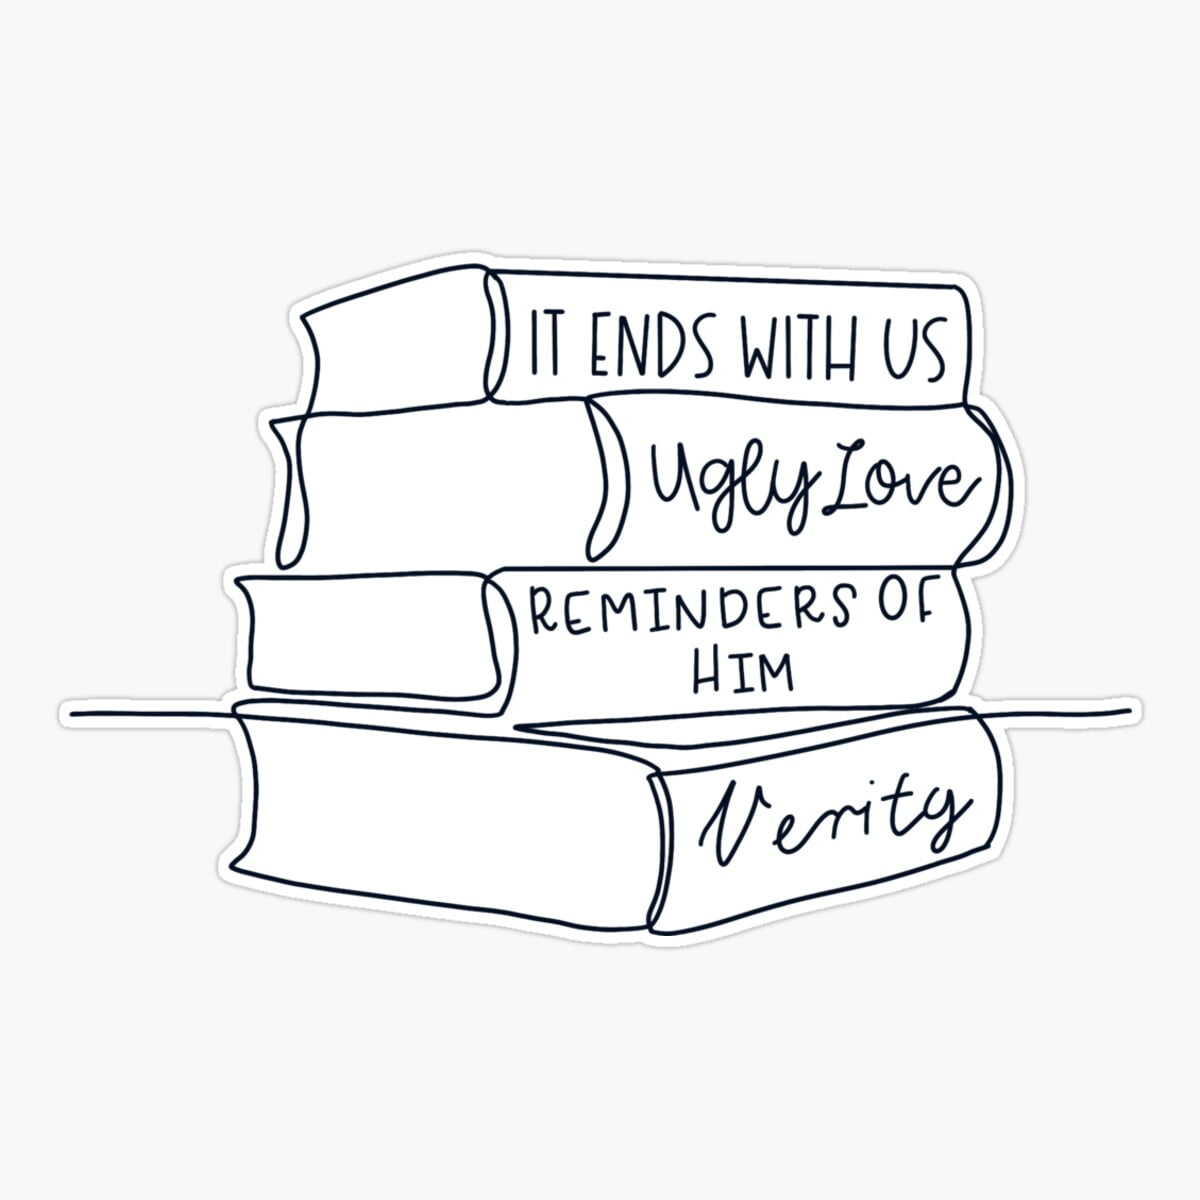 IT ENDS WITH US
Ugly Love
REMINDERS OF
HIM
Verity